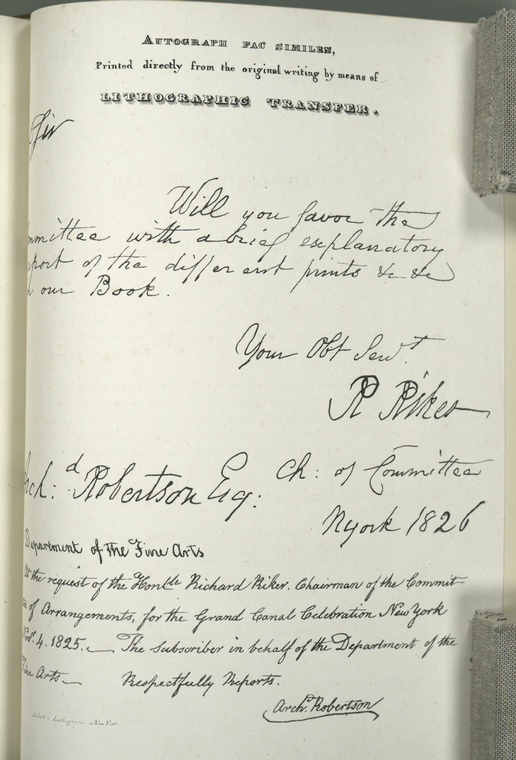 AUTOGRAPH FAC SIMILES,
Printed directly from the original writing by means of
LITHOGRAPHIC TRANSFER.
Sir
Will you favor the
mmittee with a brief explanatory
port of the different prints &c &c
n our Book.
Your Obt Servt
R Riker
ch: of Committee
ch:d Robertson Esq:
NYork 1826
Department of the Fine Arts
At the request of the Honble Richard Riker. Chairman of the Commit-
ee of Arrangements, for the Grand Canal Celebration New York
Novr. 4. 1825. — The subscriber in behalf of the Department of the
Fine Arts — Respectfully Reports.
Archd. Robertson